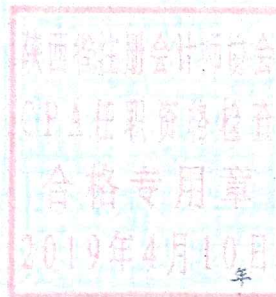 陕西省注册会计师协会
CPA任职资格检查
合格专用章
2019年4月10日
年